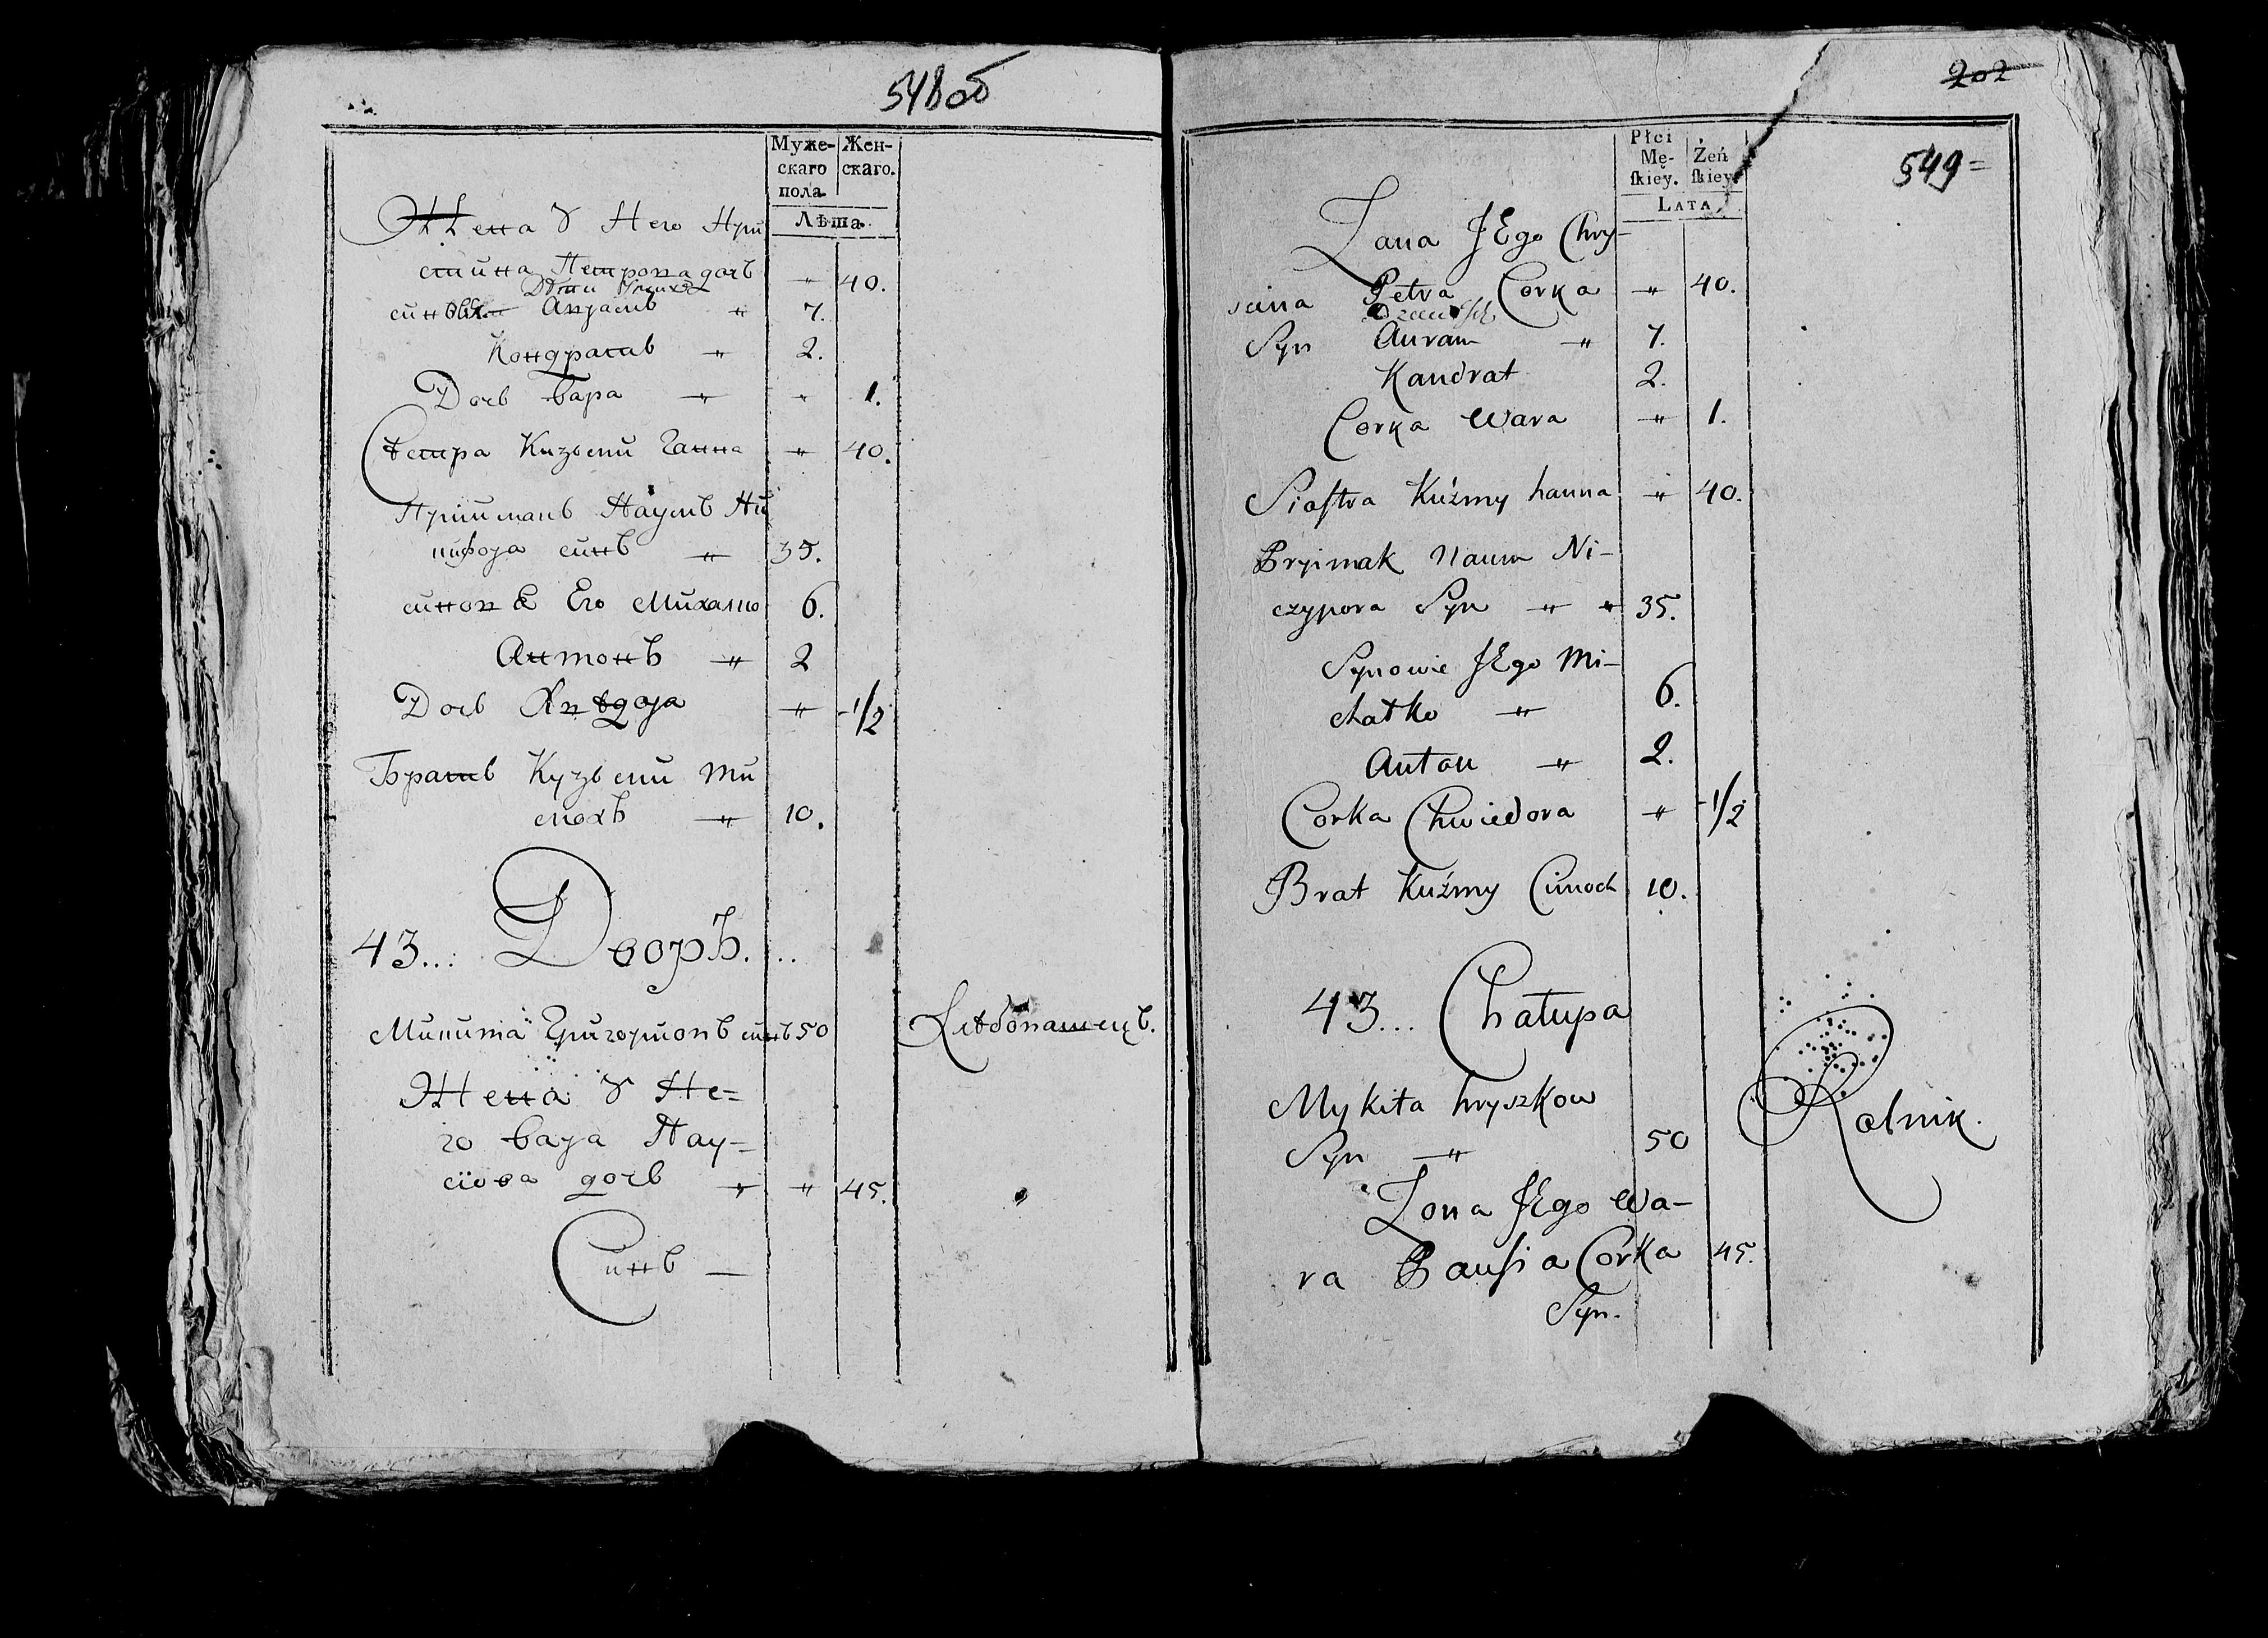 548об
Муже- Жен-
скаго скаго.
пола
Лѣта.
Жена У Него Кри
стина Петрова дочь " 40.
Дѣти
синъ Аврамъ " 7.
Кондратъ " 2.
Дочь Вара " " 1.
Сестра Кузьми Ганна " 40.
Приймакъ Наумъ Ни
чифора синъ " 35.
синовѣ Его Михалко 6.
Антонъ " 2
Дочь Хведора " 1/2
Братъ Кузьми Ти
мохъ " 10.
43... Дворъ...
Микита Григорiовъ синъ 50 Хлѣбопашецъ.
Жена У Не=
го Вара Пау=
сiова дочь " " 45.
Синъ —
202
549=
Płci
Mę- Żeń
ſkiey. ſkiey
LATA
Zana JEgo Chry-
scina Petra Corka " 40.
Syn Auram " 7.
Kandrat 2.
Corka Wara " 1.
Siaſtra Kuźmy hanna " 40.
Pryimak Naum Ni-
czypora Syn " " 35.
Synowie JEgo Mi-
chałko " 6.
Anton " 2.
Corka Chwiedora " 1/2
Brat Kuźmy Cimoch 10.
43... Chałupa
Mykita hryszkow
Syn " 50
Rolnik.
Zona JEgo Wa-
ra Pauſia Córka 45.
Syn.